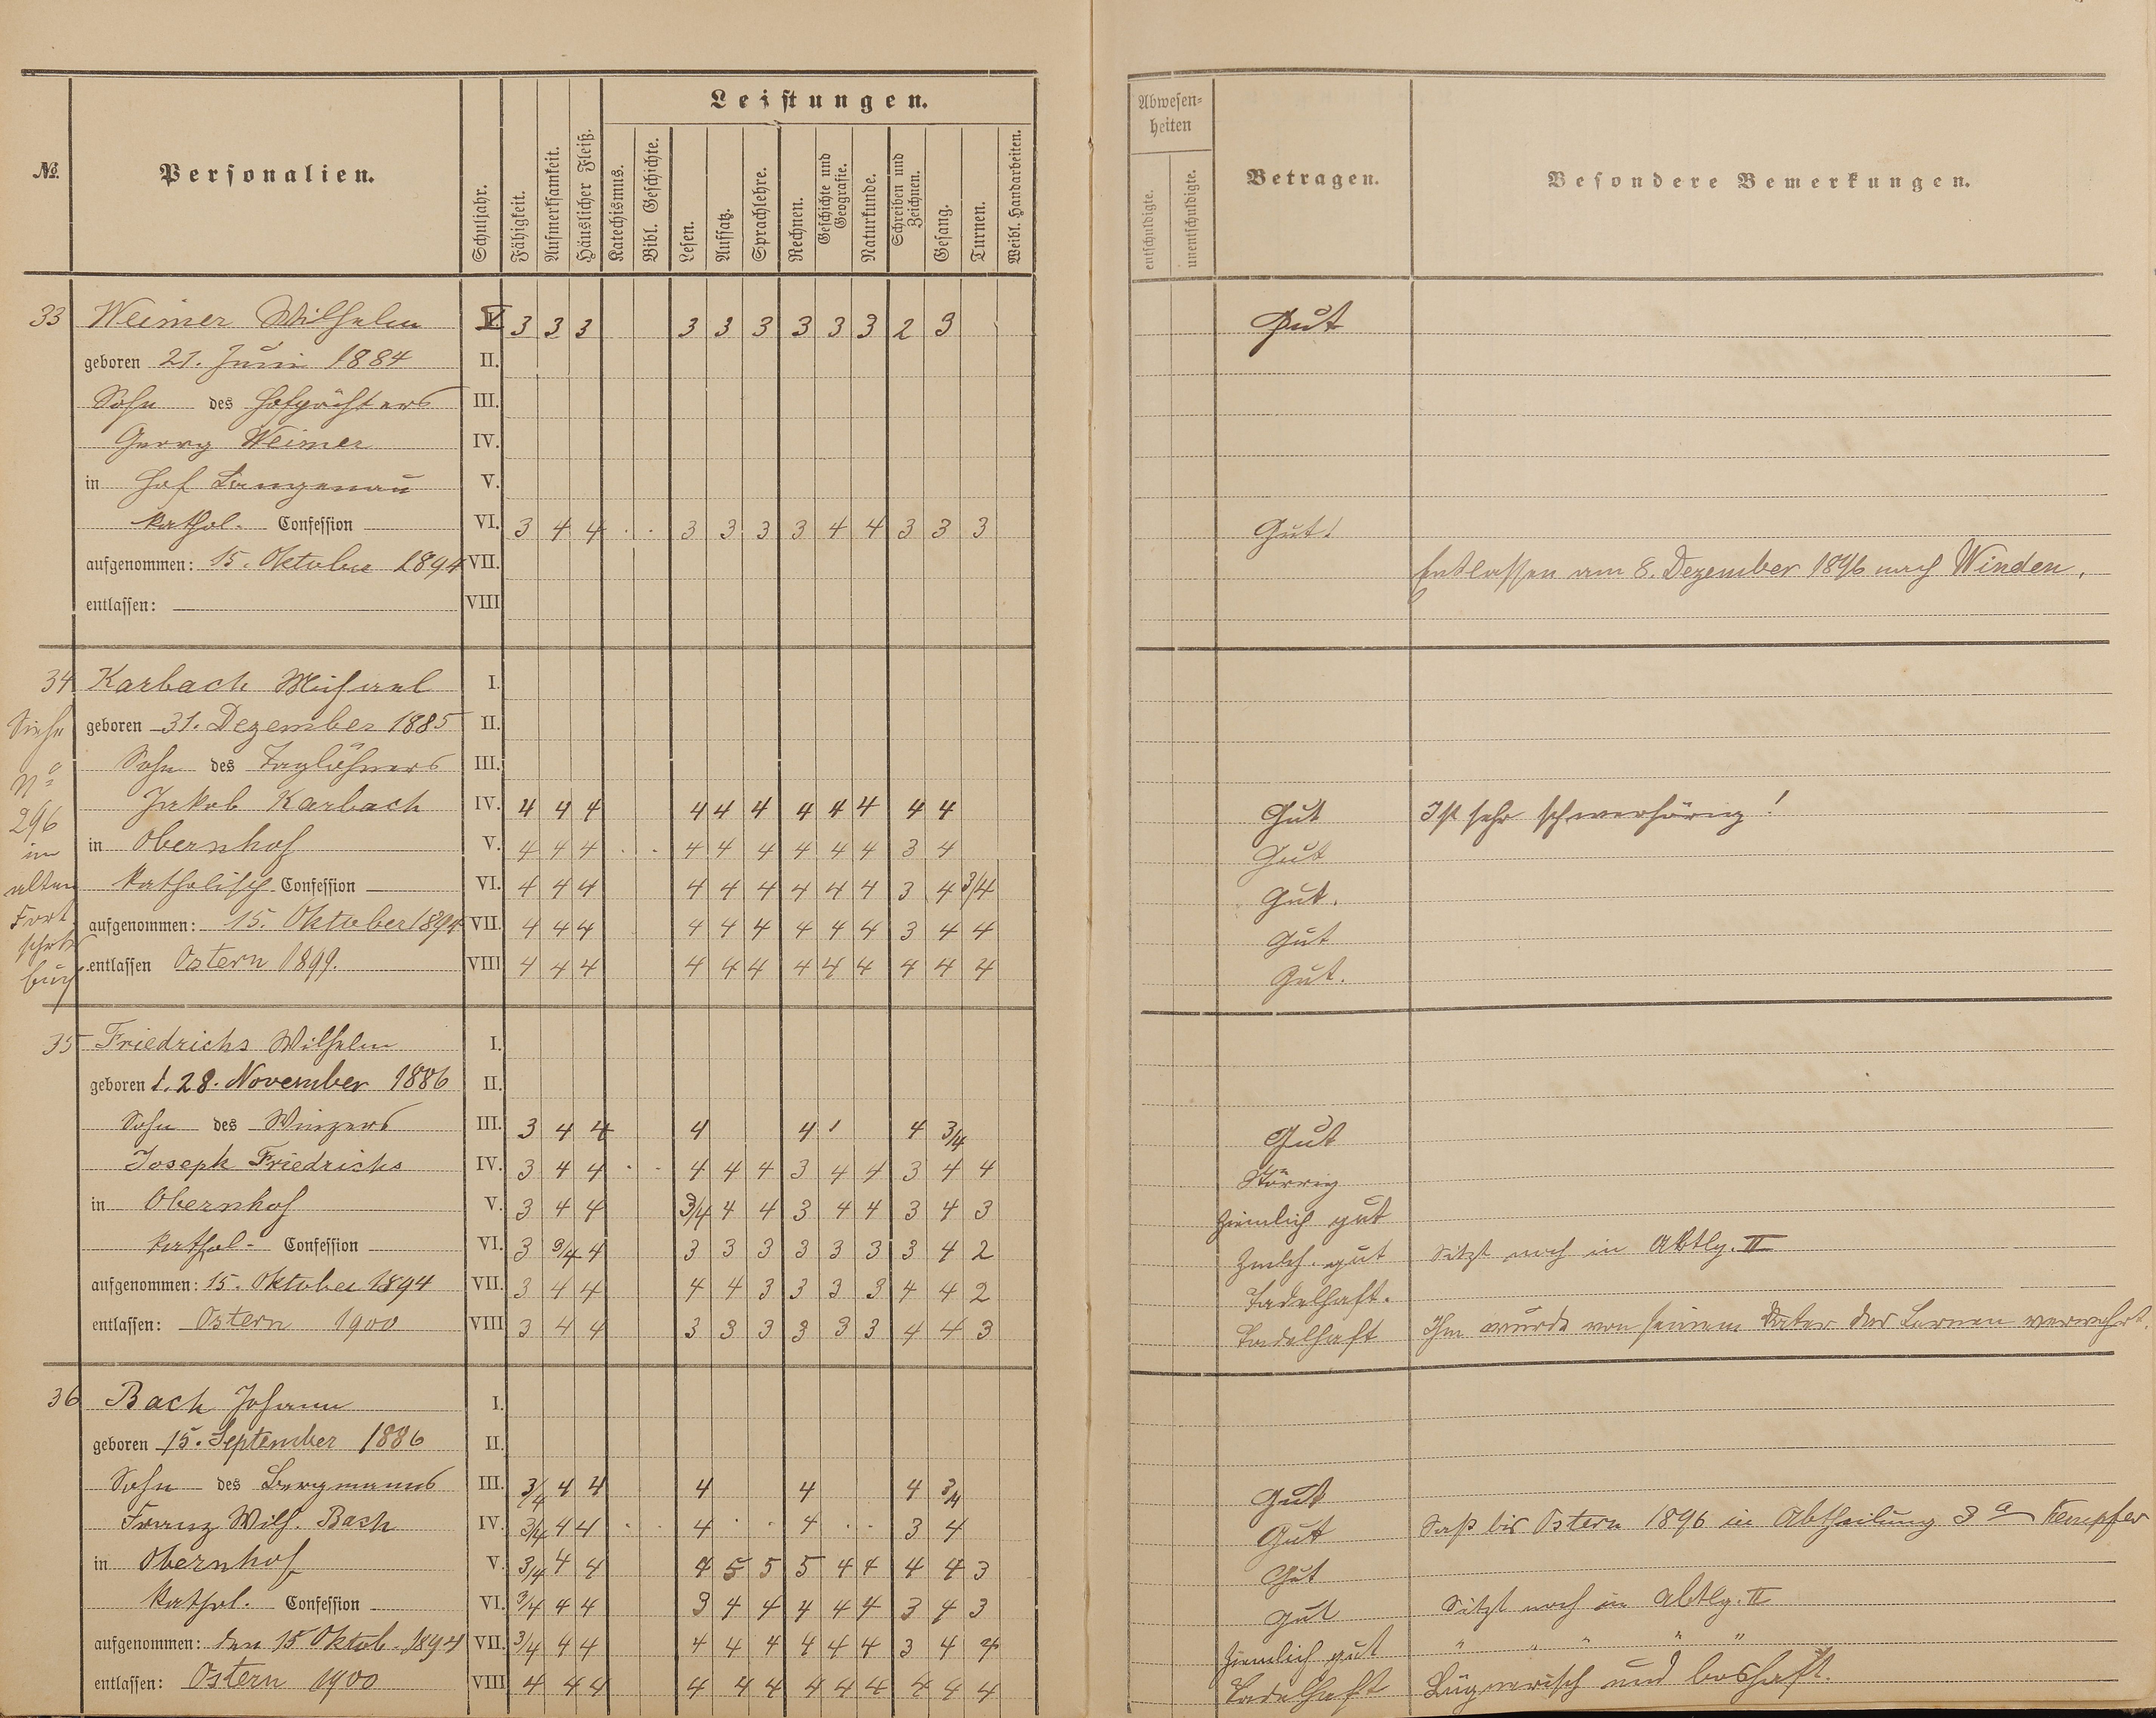 No. Personalien. Schuljahr. Fähigkeit. Aufmerksamkeit. Häuslicher Fleiß. Leistungen. Katechismus. Bibl. Geschichte. Lesen. Aufsatz. Sprachlehre. Rechnen. Geschichte und Geografie. Naturkunde. Schreiben und Zeichnen. Gesang. Turnen. Weibl. Handarbeiten.
Abwesenheiten entschuldigte. unentschuldigte. Betragen. Besondere Bemerkungen.
33 Weimer Wilhelm V. 3 3 3 3 3 3 3 3 3 2 3 Gut
geboren 21. Juni 1884 II.
Sohn des Hofpächters III.
Georg Weimer IV.
in Hof Langenau V.
kathol. Confession VI. 3 4 4 . . 3 3 3 3 4 4 3 3 3 Gut!
aufgenommen: 15. Oktober 1894 VII. Entlassen am 8. Dezember 1896 nach Winden.
entlassen: VIII
34 Karbach Michael I.
Siehe geboren 31. Dezember 1885 II.
No Sohn des Taglöhners III.
296 Jakob Karbach IV. 4 4 4 4 4 4 4 4 4 4 4 Gut Ist sehr schwerhörig!
im in Obernhof V. 4 4 4 . . 4 4 4 4 4 4 3 4 Gut
alten katholisch Confession VI. 4 4 4 4 4 4 4 4 4 3 4 3/4 Gut.
Fort aufgenommen: 15. Oktober 1894 VII. 4 4 4 4 4 4 4 4 4 3 4 4 Gut
schr buch entlassen Ostern 1899. VIII 4 4 4 4 4 4 4 4 4 4 4 4 Gut.
35 Friedrichs Wilhelm I.
geboren d. 28. November 1886 II.
Sohn des Winzers III. 3 4 4 4 4 4 3/4 Gut
Joseph Friedrichs IV. 3 4 4 . . 4 4 4 3 4 4 3 4 4 Störrig
in Obernhof V. 3 4 4 3/4 4 4 3 4 4 3 4 3 Ziemlich gut
kathol. Confession VI. 3 3/4 4 3 3 3 3 3 3 3 4 2 Zmlch. gut Sitzt noch in Abtlg. II
aufgenommen: 15. Oktober 1894 VII. 3 4 4 4 4 3 3 3 3 4 4 2 Tadelhaft.
entlassen: Ostern 1900 VIII 3 4 4 3 3 3 3 3 3 4 4 3 Tadelhaft Ihm wurde von seinem Vater das Lernen verwehrt.
36 Bach Johann I.
geboren 15. September 1886 II.
Sohn des Bergmanns III. 3/4 4 4 4 4 4 3/4 Gut
Franz Wilh. Bach IV. 3/4 4 4 . . 4 . . 4 . . 3 4 Gut Saß bis Ostern 1896 in Abtheilung 3 a Kempfer
in Obernhof V. 3/4 4 4 4 5 5 5 4 4 4 4 3 Gut
kathol. Confession VI. 3/4 4 4 3 4 4 4 4 4 3 4 3 Gut Sitzt noch in Abtlg. II
aufgenommen: den 15 Oktob. 1894 VII. 3/4 4 4 4 4 4 4 4 4 3 4 4 Ziemlich gut " " " " "
entlassen: Ostern 1900 VIII 4 4 4 4 4 4 4 4 4 4 4 4 Tadelhaft Lügnerisch und boshaft.